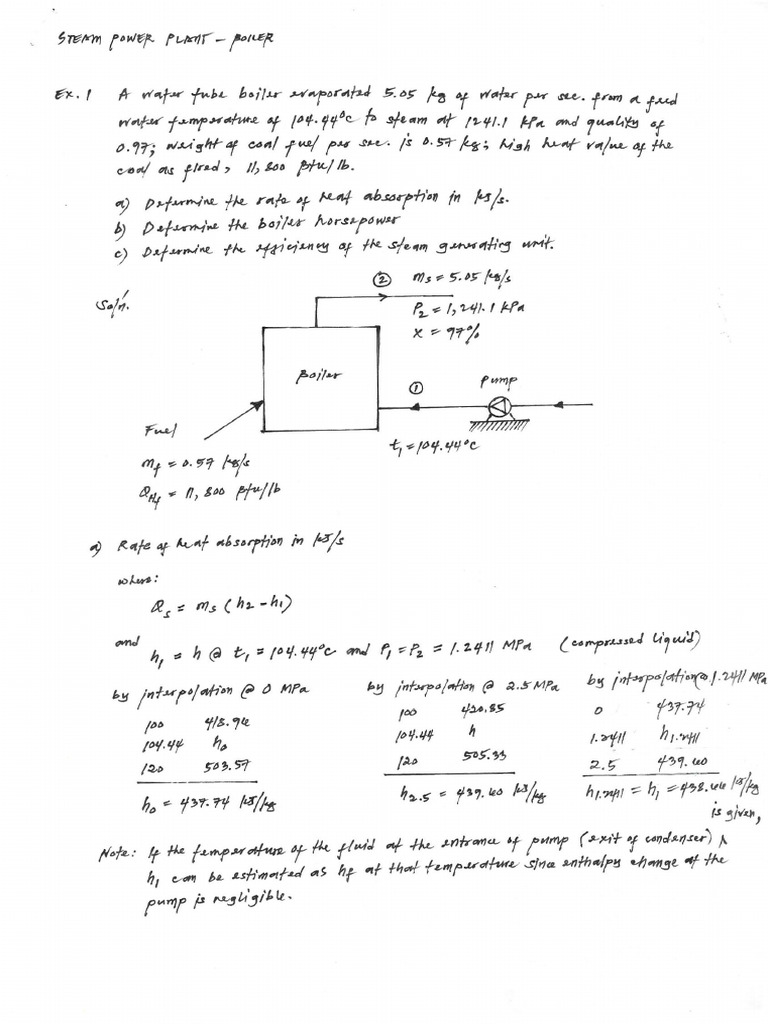 STEAM POWER PLANT – BOILER
Ex. 1 A water tube boiler evaporated 5.05 kg of water per sec. from a feed
water temperature of 104.44°C to steam at 1241.1 kPa and quality of
0.97; weight of coal fuel per sec. is 0.57 kg; high heat value of the
coal as fired, 11,800 Btu/lb.
a) Determine the rate of heat absorption in kJ/s.
b) Determine the boiler horsepower
c) Determine the efficiency of the steam generating unit.
Sol'n.
② ms = 5.05 kg/s
P2 = 1,241.1 kPa
x = 97%
Boiler
①
Pump
t1 = 104.44°C
Fuel
mf = 0.57 kg/s
QHf = 11,800 Btu/lb
a) Rate of heat absorption in kJ/s
where:
Qs = ms (h2 – h1)
and
h1 = h @ t1 = 104.44°C and P1 = P2 = 1.2411 MPa (compressed liquid)
by interpolation @ 0 MPa
100 418.96
104.44 h0
120 503.57
h0 = 437.74 kJ/kg
by interpolation @ 2.5 MPa
100 420.85
104.44 h
120 505.33
h2.5 = 439.60 kJ/kg
by interpolation @ 1.2411 MPa
0 437.74
1.2411 h1.2411
2.5 439.60
h1.2411 = h1 = 438.66 kJ/kg
Note: If the temperature of the fluid at the entrance of pump (exit of condenser) is given,
h1 can be estimated as hf at that temperature since enthalpy change at the
pump is negligible.